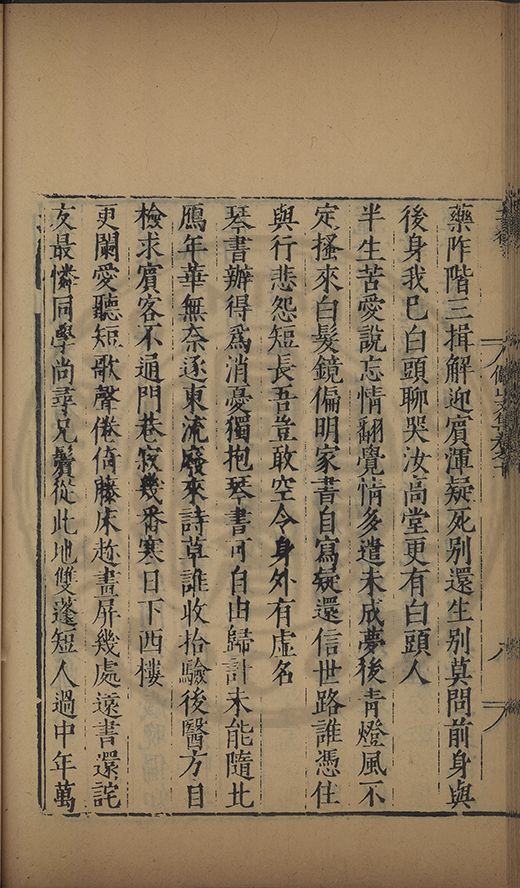 藥阼階三揖解迎賓渾疑死別還生別莫問前身與
後身我已白頭聊哭汝高堂更有白頭人
半生苦愛說忘情翻覺情多遣未成夢後青燈風不
定搔來白髮鏡偏明家書自寫疑還信世路誰憑住
與行悲怨短長吾豈敢空令身外有虛名
琴書辦得爲消憂獨抱琴書可自由歸計未能隨北
鴈年華無奈逐東流廢來詩草誰收拾驗後醫方自
檢求賓客不通門巷寂幾番寒日下西樓
更闌愛聽短歌聲倦倚藤床趂畫屏幾處遠書還詫
友最憐同學尚尋兄鬢從此地雙蓬短人過中年萬